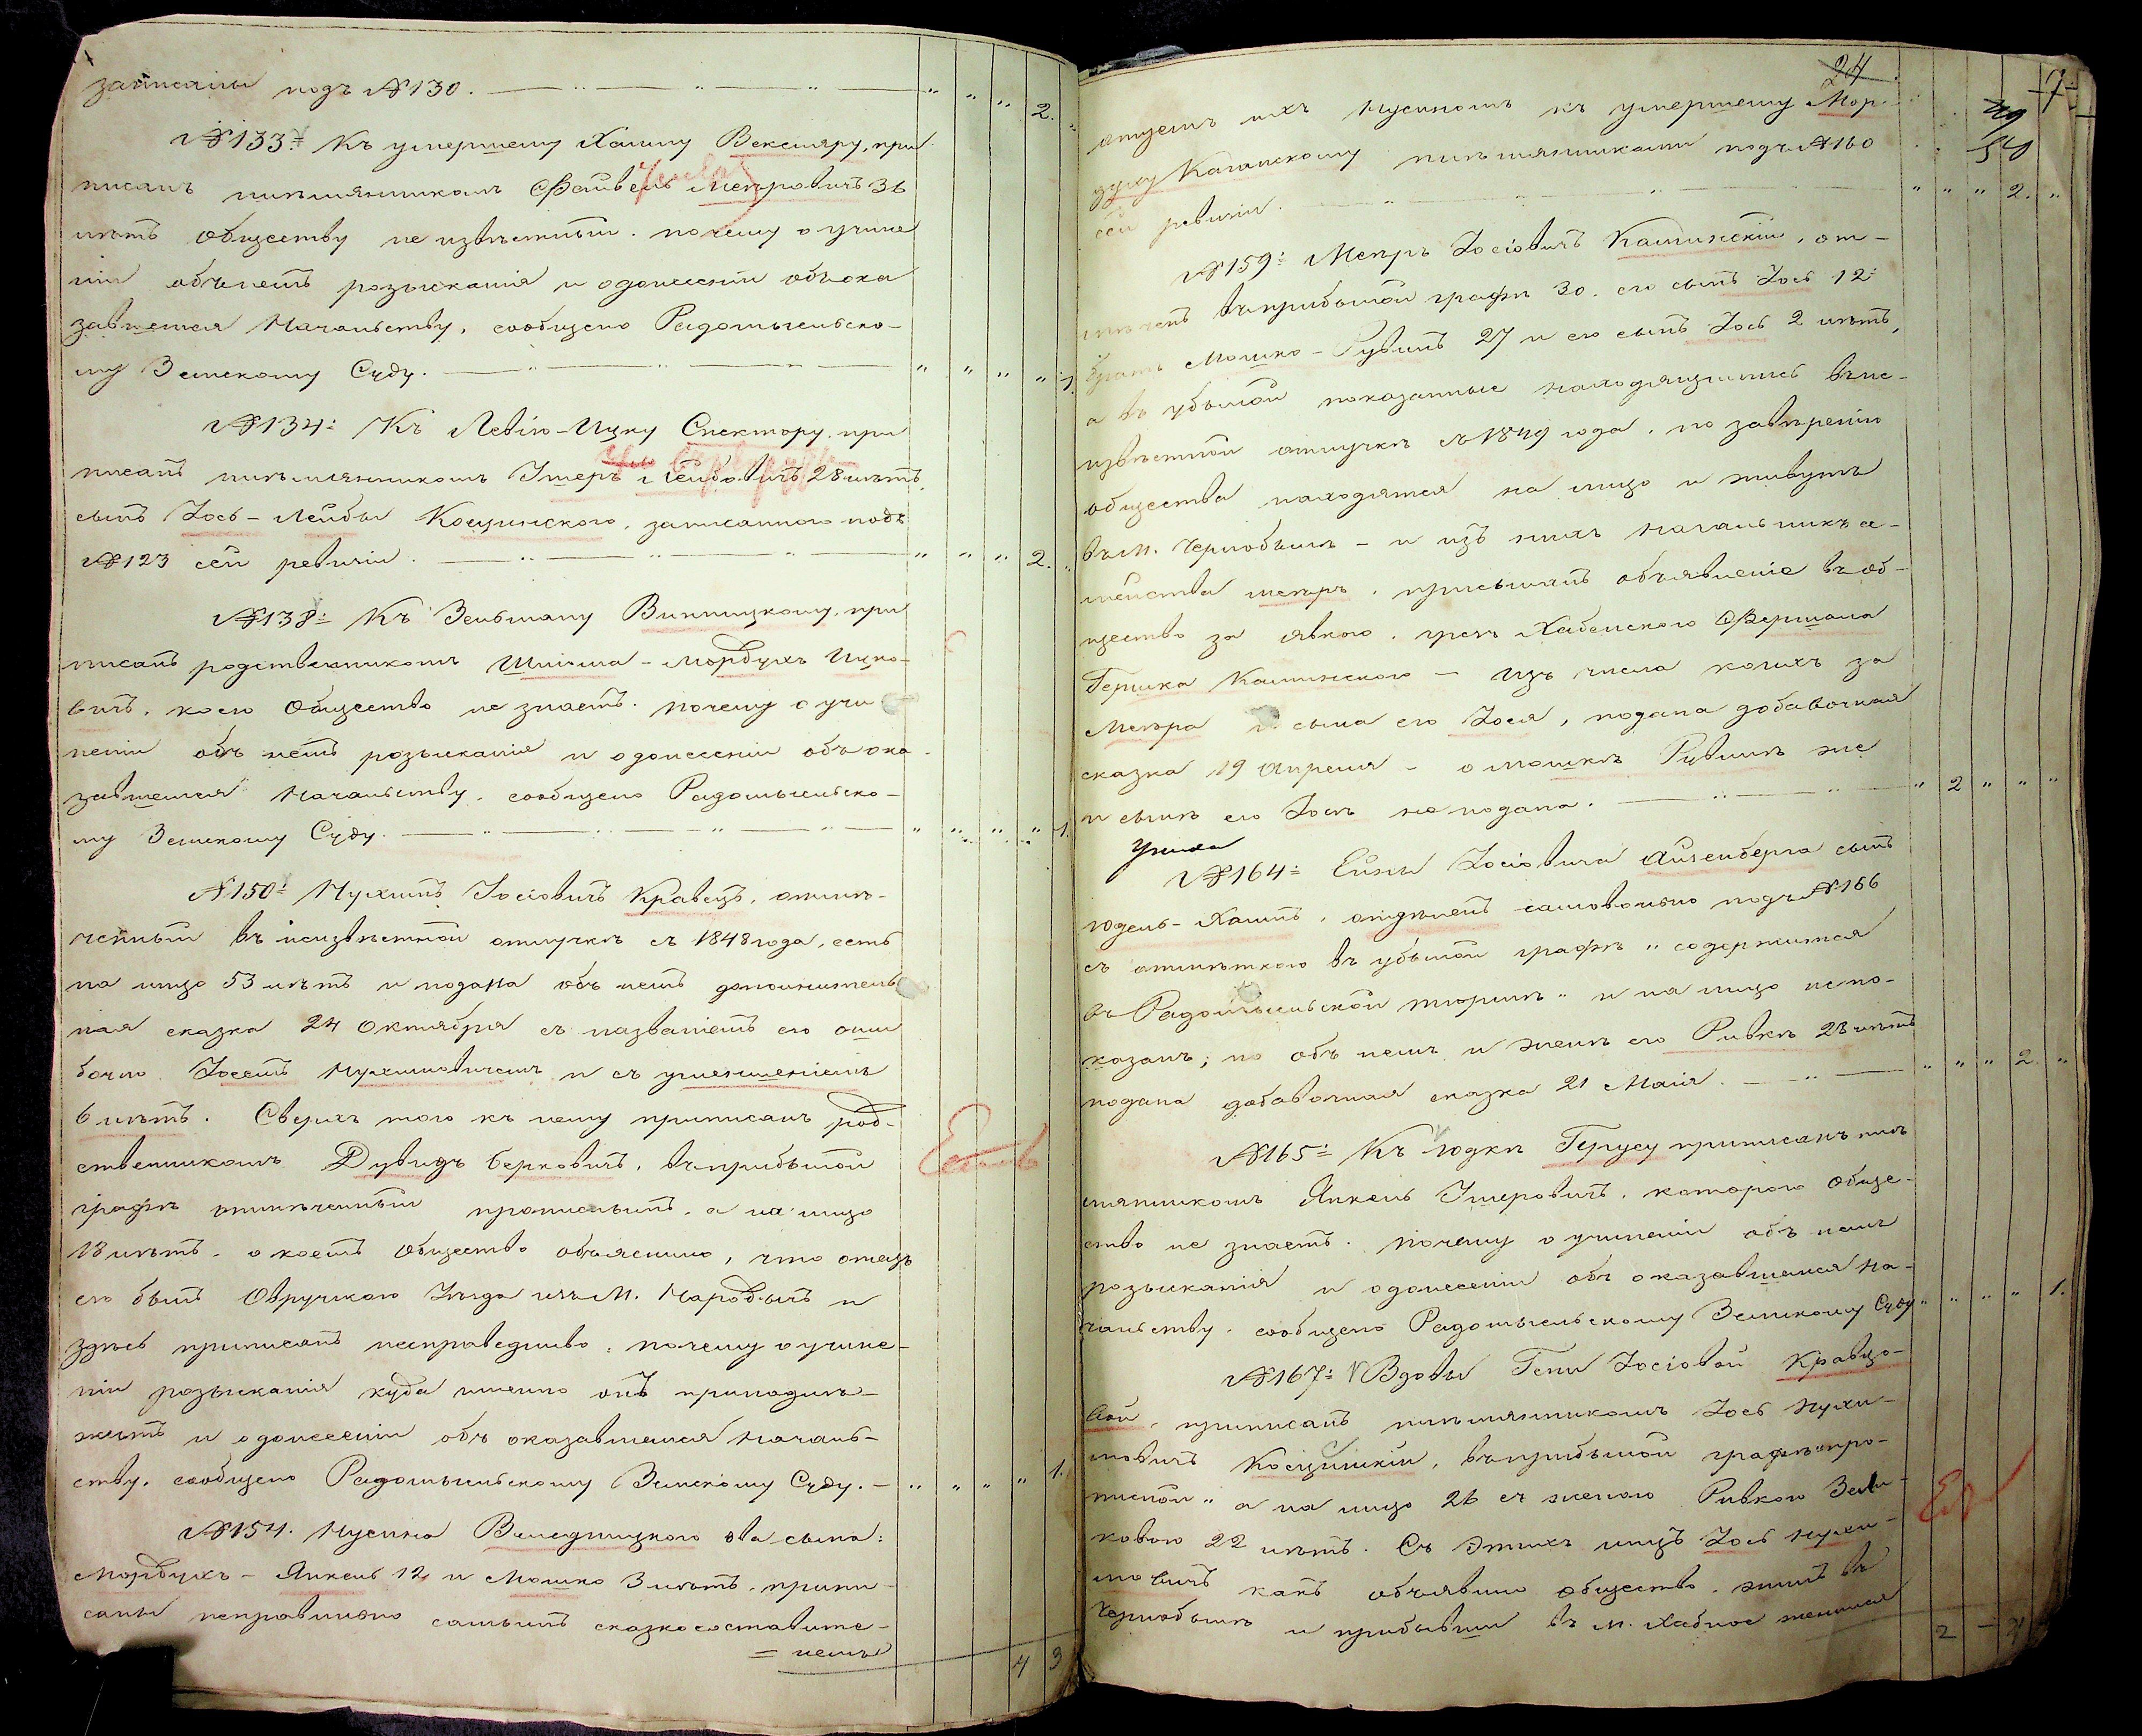 записаны подъ №130. " " " 2. "
№133. Къ умершему Хаиму Векслеру, при
писанъ племянникомъ Файвель Мееровичъ 36
лѣтъ Обществу не извѣстный. почему о учине
ніи объ немъ розысканія и одонесеніи объ ока
завшемся Начальству, сообщено Радомысльско-
му Земскому Суду. " " " " 1.
№134: Къ Левію-Ицку Спектору, при
писанъ племянникомъ Лейбовичъ 28 лѣтъ,
сынъ Іось-Лейбы записаннаго подъ
№123 сей ревизіи. " " " 2. "
№138: Къ Зельману Винницкому, при
писанъ родственникомъ Шліома-Мордухъ Ицко-
вичъ, коего Общество не знаетъ. почему о учи
неніи объ немъ розысканія и одонесеніи объ ока-
завшемся Начальству, сообщено Радомысльско-
му Земскому Суду. " " " " 1.
№150: Нухимъ Іосіовичъ Кравецъ, отмѣ-
ченный въ неизвѣстной отлучкѣ съ 1848 года, есть
на лицо 53 лѣтъ и подана объ немъ дополнитель
ная сказка 24 Октября съ названіемъ его оши
бочно Іосемъ Нухимовичемъ и съ уменшеніемъ
6 лѣтъ. Сверхъ того къ нему приписанъ род-
ственникомъ Дувидъ Берковичъ, въ прибылой
графѣ отмѣченный прописнымъ, а на лицо
18 лѣтъ, о коемъ Общество объяснило, что отецъ
его былъ Овручскаго Уѣзда изъ М. Народычъ и
здѣсь приписанъ несправедливо, почему о учине-
ніи розысканія куда именно онъ принадле-
житъ и одонесеніи объ оказавшемся Началь-
ству, сообщено Радомысльскому Земскому Суду. " " " " 1.
№154. Нусина Веледницкого два сына:
Мордухъ-Янкель 12 и Мошко 3 лѣтъ, припи
саны неправильно самымъ сказкосоставите-
= лемъ
4 3
24
7
49
50
отцемъ ихъ Нусиномъ къ умершему Мор-
духу Каганскому племянниками подъ №160
сей ревизіи. " " " 2. "
№159: Мееръ Іосіовичъ Каминскій, от-
мѣченъ въ прибылой графѣ 30. его сынъ Іось 12:
братъ Мошко-Рувинъ 27 и его сынъ Іось 2 лѣтъ,
а въ убылой показанные находящимись въ не-
извѣстной отлучкѣ съ 1849 года, по завѣренію
общества находятся на лицо и живутъ
въ М. Чернобылѣ - и изъ нихъ начальникъ се-
мейства Мееръ, присылалъ объявленіе въ об-
щество за явкою, чрезъ Хабенского Фершала
Гершка Каминского - изъ числа коихъ за
Меера и сына его Іося, подана добавочная
сказка 19 Апреля - о Мошкѣ Рувинѣ же
и сынѣ его Іосѣ не подана. " 2 " " "
№164: Ейны Іосіовича Айзенберга сынъ
Юдель-Хаимъ, отдѣленъ самовольно подъ №166
съ отмѣткою въ убылой графѣ " содержится
въ Радомысльской тюрмѣ " и на лицо непо-
казанъ; но объ немъ и женѣ его Ривкѣ 28 лѣтъ
подана добавочная сказка 21 Маія. " " " 2. "
№165: Къ Юдкѣ Герусу приписанъ пле
мянникомъ Янкель котораго Обще-
ство не знаетъ. почему о учиненіи объ немъ
розысканія и одонесеніи объ оказавшемся На-
чальству, сообщено Радомысльскому Земскому Суду " " " " 1.
№167: Вдовы Гени Іосіовой Кравцо-
вой, приписанъ племянникомъ Іось Нухи-
мовичъ въ прибылой графѣ "про-
писной" а на лицо 26 съ женою Ривкою Зель-
ковою 22 лѣтъ. Съ этихъ лицъ Іось Нухи-
мовичъ какъ объявило общество, жилъ въ
Чернобылѣ и прибывши въ м. Хабное женился
2 - 4